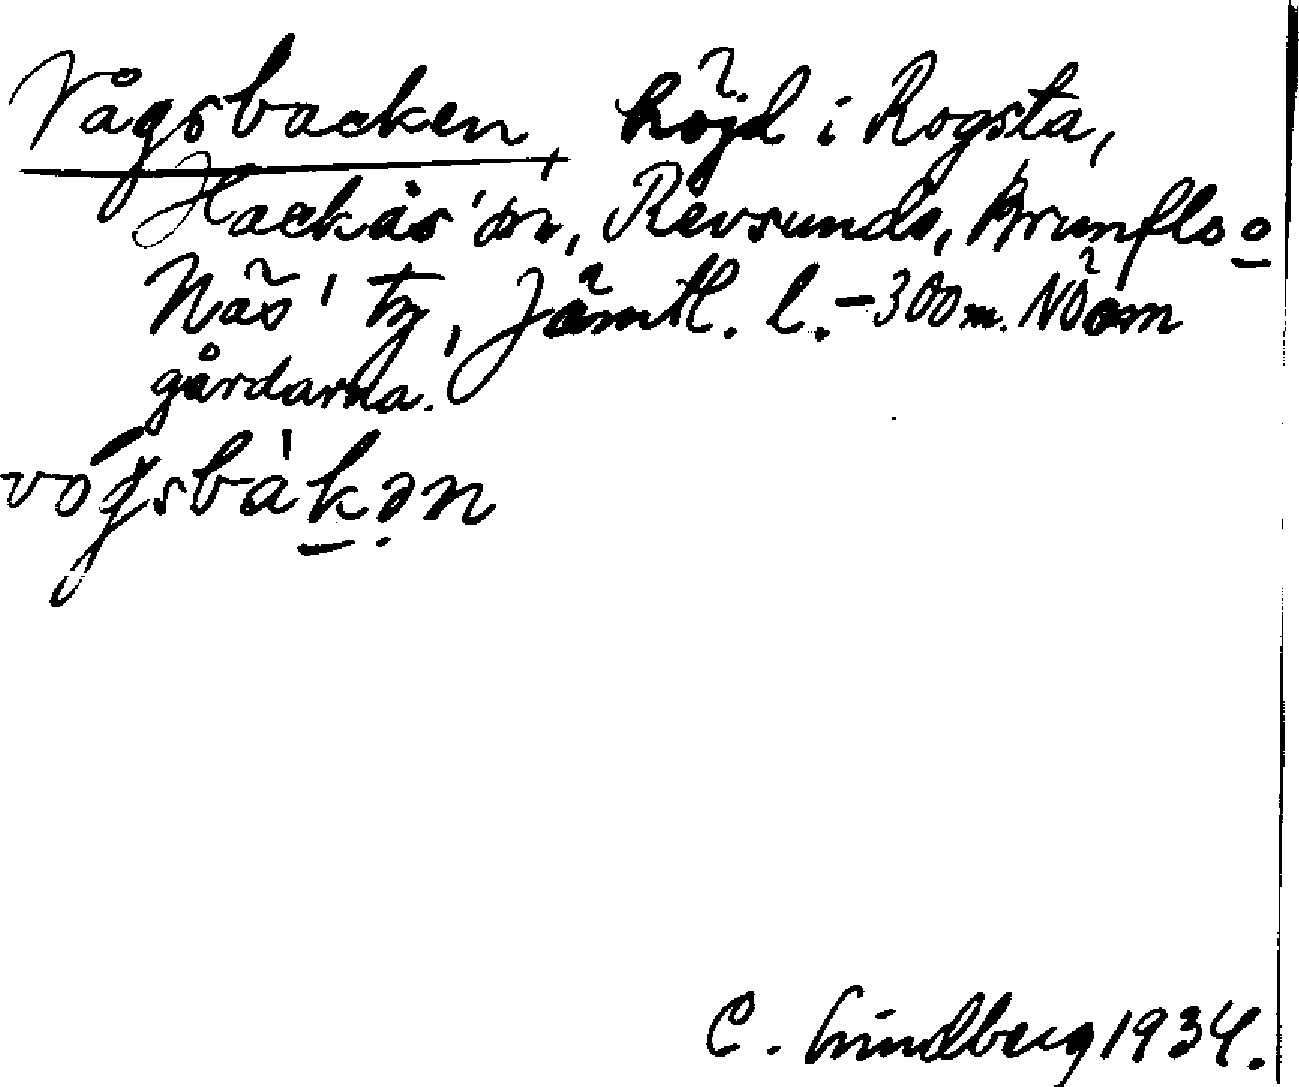 Vågsbacken, höjd i Rogsta,
Hackås' sn, Revsunds, Brunflo o
Näs' tg, Jämtl. l. -300 m. NÖ om
gårdarna.
vógsbàkən
C. Lindberg 1934.